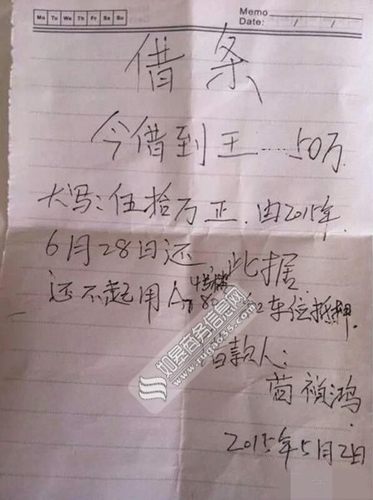 Memo
Mo Tu We Th Fr Sa Su Date: / /
借条
今借到王...50万
大写:伍拾万正.由2015年
6月28日还,此据
还不起用 车位抵押.
如皋商务信息网
借款人:
2015年5月2日